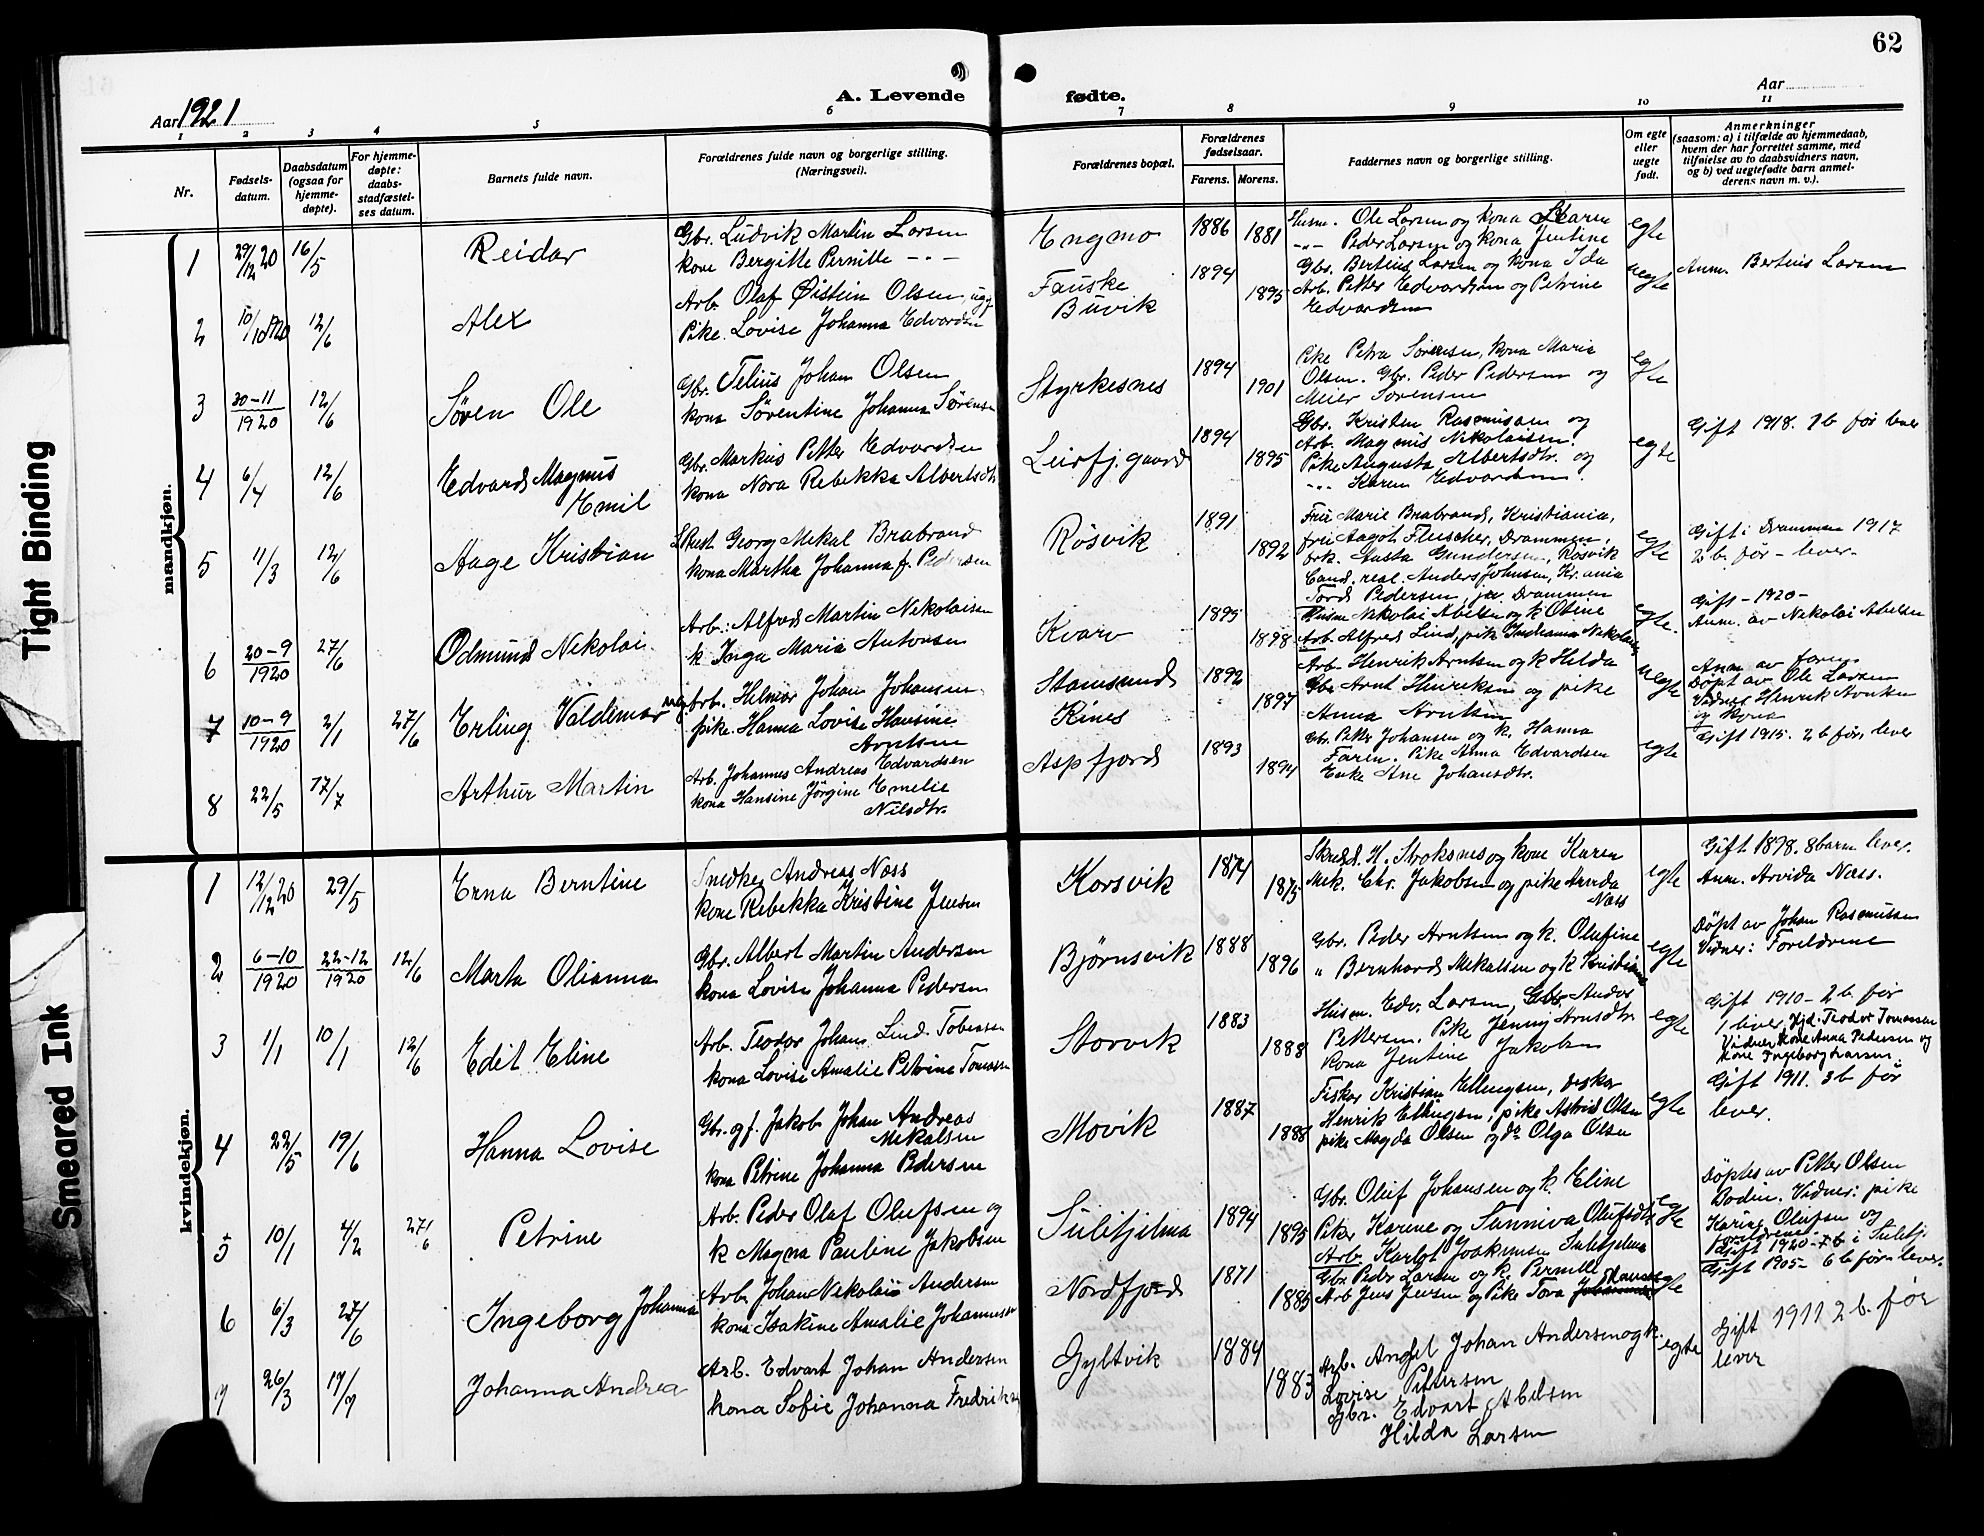 62
Aar 1921
A. Levende
fødte.
Aar
1 2 3 4 5 6 7 8 9 10 11
Nr.
Fødsels-
datum.
Daabsdatum
(ogsaa for
hjemme-
døpte).
For hjemme-
døpte:
daabs-
stadfæstel-
ses datum.
Barnets fulde navn.
Forældrenes fulde navn og borgerlige stilling.
(Næringsvei).
Forældrenes bopæl.
Forældrenes
fødselsaar.
Farens. Morens.
Faddernes navn og borgerlig stilling.
Om egte
eller
uegte
født.
Anmerkninger
(saasom: a) i tilfælde av hjemmedaab,
hvem der har forrettet samme, med
tilføielse av to daabsvidners navn,
og b) ved uegtefødte barn anmel-
derens navn m. v.).
mandkjøn.
1 29/12 20 16/5 Reidar
Gbr. Ludvik Martin Larsen
kone Bergitte Pernille -"-
Engmo 1886 1881
Husm. Ole Larsen og kona Karen
-"- Peder Larsen og kona Jentine
egte
2 10/10 1920 12/6 Alex
Arb. Olaf Øistein Olsen, ug.
Pike. Lovise Johanna Edvardsen
Fauske
Buvik
1894 1895
Gbr. Berteus Larsen og kona Ida
Arb. Petter Edvardsen og Petrine
Edvardsen
uegte
Anm. Berteus Larsen
3 30-11 1920 12/6 Søren Ole
Gbr. Telius Johan Olsen
kona Sørentine Johanna Sørensen
Styrkesnes 1894 1901
Pike Petra Sørensen, kona Marie
Olsen. Gbr. Peder Pedersen og
Meier Sørensen
egte
4 6/4 12/6 Edvard Magnus
Emil
Gbr. Markus Petter Edvardsen
kona Nora Rebekka Albertsdtr
Leirfj.gaard 1894 1895
Gbr. Kristen Rasmussen og
Arb. Magnus Nikolaisen.
Pike Augusta Albertsdtr. og
-"- Karen Edvardsen.
egte
Gift 1918. 1 b før lever
5 11/3 12/6 Aage Kristian
Georg Mekal Brabrand
kona Martha Johanna f. Pedersen
Røsvik 1891 1892
Frue Marie Brabrand, Kristiania,
frü Aagot Fleischer, Drammen,
frk. Aasta Gundersen, Røsvik
Cand. real. Anders Johnsen, Kr.ania
Tord Pedersen, jr. Drammen
egte
Gift: Drammen 1917
2 b. før - lever-
6 20-9 1920 27/6 Odmund Nekolai
Arb.: Alfred Martin Nekolaisen
k Inga Maria Antonsen
Kvarv 1895 1898
Husm Nekolai Abelsen og k Oline
Arb. Alfred Lind, pik Indianna Nekolaisen
egte.
Gift - 1920 -
Anm. av Nekolai Abelsen
7 10-9 1920 2/1 27/6 Erling Valdemar
Arb. Helmer Johan Johansen.
pike. Hanna Lovise Hansine
Arntsen
Stamsund
Kines
1892 1897
Arb. Henrik Arntsen og k Hilda
Gbr Arnt Henriksen og pike
Anna Arntsen
uegte
Anm av faren
Døpt av Ole Larsen
Vidner Henrik Arntsen
og kona
8 22/5 17/7 Arthur Martin
Arb. Johannes Andreas Edvardsen
kona Hansine Jørgine Emelie
Nilsdtr.
Aspfjord 1893 1894
Gbr. Peter Johansen og k. Hanna
Faren. Pike Anna Edvardsen
Enke Ane Johansdtr.
egte
Gift 1915. 2 b før, lever
kvindekjøn.
1 12/12 20 29/5 Erna Berntine
Snedker Andreas Næss
kone Rebekka Kristine Jensen
Korsvik 1874 1875
Skredd. H. Stroksnes og kone Karen
Mek. Chr. Jakobsen og pike Arvida
Næss
egte
Gift 1898. 8 barn lever.
Anm. Arvida Næss.
2 6-10 1920 22-12 1920 12/6 Marta Olianna
Gbr. Albert Martin Andersen
kona Lovise Johanna Pedersen
Bjørnsvik 1888 1896
Gbr. Peder Arntsen og k. Olufine
" Bernhard Mekalsen og k Kristiane
egte
Døpt av Johan Rasmussen
Vidner: Foreldrene
3 1/1 10/1 12/6 Edit Eline
Arb. Teodor Johans Lind. Tobiassen
kona Lovise Amalie Petrine Tomassen
Storvik 1883 1888
Husm. Edv. Larsen, Gbr. Anders
Pettersen. Pike Jenny Arnsdtr
Kona Jentine Jakobsen
egte
Gift 1910 - 2 b. før
1 lever, Hjd. Teodor Tomassen
Vidner kone Anna Pedersen og
kone Ingeborg Larsen.
4 22/5 19/6 Hanna Lovise
Gbr. og f. Jakob Johan Andreas
Mekalsen
kona Petrine Johanna Pedersen
Movik 1887 1888
Fisker Kristian Ellingsen, fisker
Henrik Ellingsen, pike Astrid Olsen
pike Magda Olsen og do Olga Olsen
egte
Gift 1911. 3 b før
lever.
5 10/1 4/2 27/6 Petrine
Arb. Peder Olaf Olufsen og
k Magna Pauline Jakobsen
Sulitjelma 1894 1895
Gbr. Oluf Johansen og k. Eline
Piker Karine og Sanniva Olufsdtr
Arb. Karlot Joakimsen Sulitjelma
egte
Døptes av Petter Olsen
Bodin. Vidner: pike
Karine Olufsen og
foreldrene.
Gift 1920 - 7 b i Sulitj.
6 6/3 27/6 Ingeborg Johanna
Arb. Johan Nekolai Andersen
kona Isakine Amalie Johannessen
Nordfjord 1871 1885
Gbr Peder Larsen og k. Pernille
Arb Jens Jensen og Pike Tora Hansen
egte
Gift 1905 - 6 b før lever.
7 26/3 17/7 Johanna Andrea
Arb. Edvart Johan Andersen
kona Sofie Johanna Fredriksen
Gyltvik 1884 1883
Arb. Angel Johan Andersen og k.
Lovise Pettersen
Gbr. Edvart Abelsen
Hilda Larsen
egte
Gift 1911 2 b. før
lever
Tight Binding
Smeared Ink